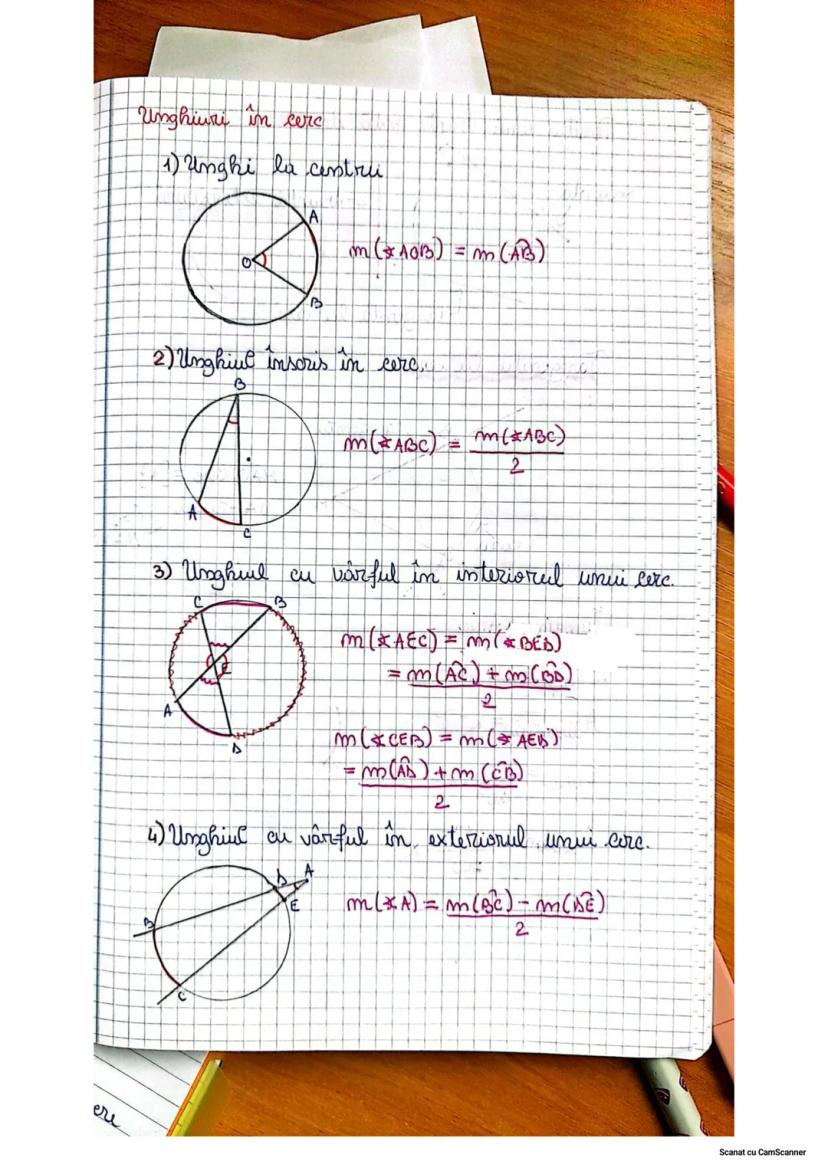 Unghiuri în cerc
1) Unghi la centru
A
O
B
m(∢AOB) = m(A͡B)
2) Unghiul înscris în cerc.
B
A
C
m(∢ABC) = m(∢ABC)
2
3) Unghiul cu vârful în interiorul unui cerc.
C B
E
A
D
m(∢AEC) = m(∢BED)
= m(A͡C) + m(B͡D)
2
m(∢CEB) = m(∢AED)
= m(A͡D) + m(C͡B)
2
4) Unghiul cu vârful în exteriorul unui cerc.
D A
E
B
C
m(∢A) = m(B͡C) - m(D͡E)
2
ere
Scanat cu CamScanner